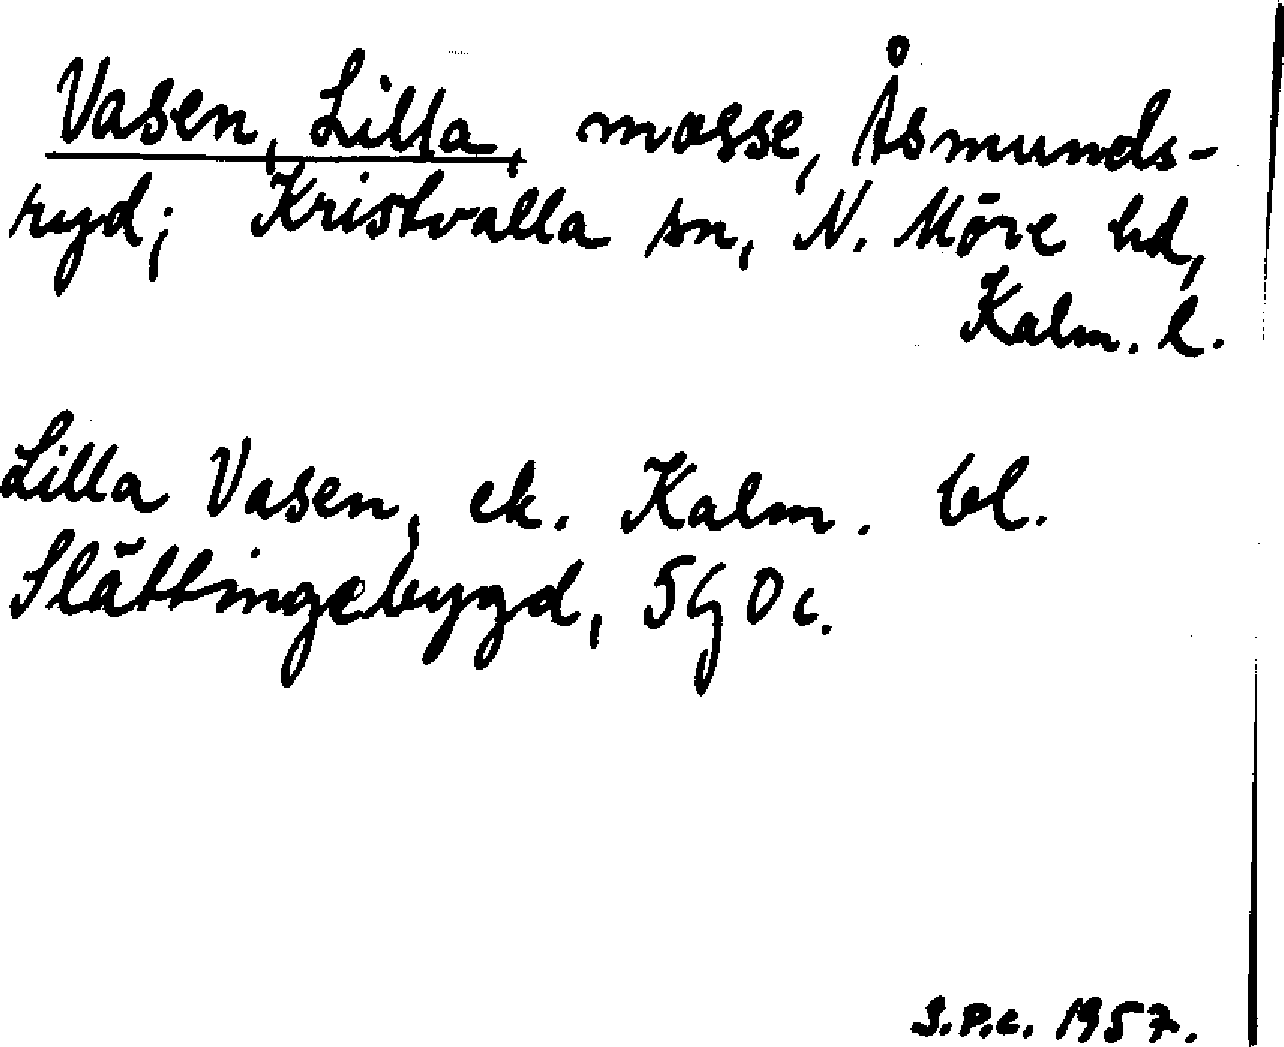 Vasen, Lilla, mosse, Åsmunds-
ryd; Kristvalla sn, N. Möre hd,
Kalm. l.
Lilla Vasen, ek. Kalm. bl.
Slättingebygd, 5G0c.
S.P.c. 1957.